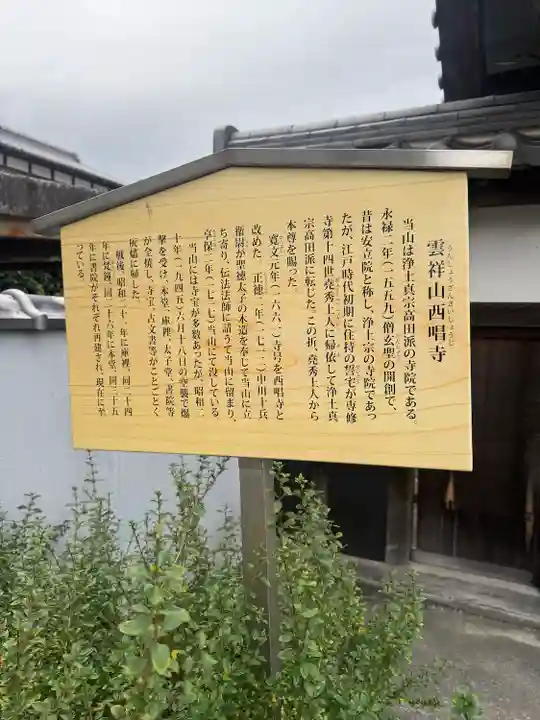 うんしょうざんさいしょうじ
雲祥山西唱寺
当山は浄土真宗高田派の寺院である。
永禄二年（一五五九）僧玄聖の開創で、
昔は安立院と称し、浄土宗の寺院であっ
たが、江戸時代初期に住持の誓宅が専修
寺第十四世堯秀上人に帰依して浄土真
宗高田派に転じた。この折、堯秀上人から
本尊を賜った
寛文元年（一六六一）寺号を西唱寺と
改めた 正徳二年（一七一二）中川十兵
衛尉が聖徳太子の木造を奉じて当山に立
ち寄り、伝法法師に請うて当山に留まり、
享保二年（一七一七）当山にて没している
当山には寺宝が多数あったが、昭和二
十年（一九四五）六月十八日の空襲で爆
撃を受け、本堂、庫裡、太子堂、書院等
が全焼し、寺宝、古文書等がことごとく
灰燼に帰した。
戦後、昭和二十一年に庫裡、同二十四
年に梵鐘、同二十六年に本堂、同三十五
年に書院がそれぞれ再建され、現在に至
っている。